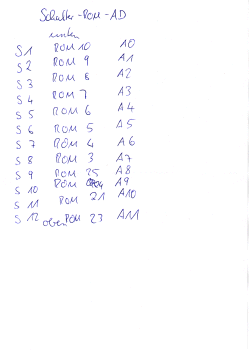 Schalter - ROM - AD
unten
S1 ROM 10 A0
S2 ROM 9 A1
S3 ROM 8 A2
S4 ROM 7 A3
S5 ROM 6 A4
S6 ROM 5 A5
S7 ROM 4 A6
S8 ROM 3 A7
S9 ROM 25 A8
S10 ROM A9
S11 ROM 21 A10
S12 oben ROM 23 A11